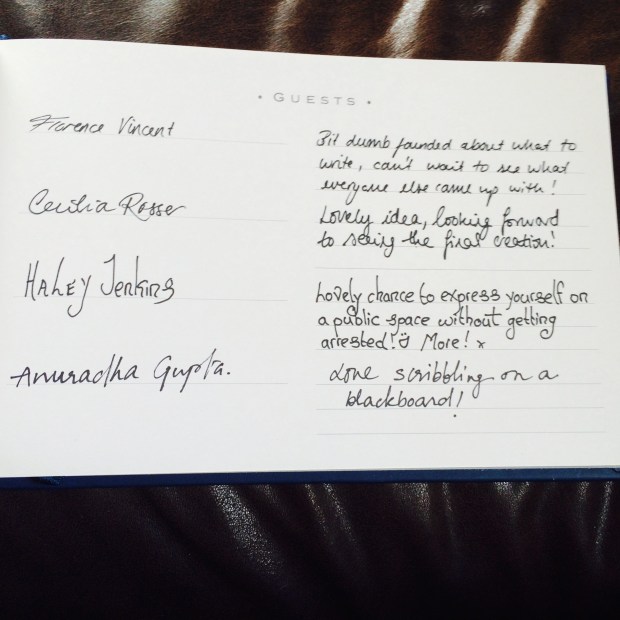 • GUESTS •
Florence Vincent
Bit dumb founded about what to
write, can't wait to see what
everyone else came up with!
Cecilia Rosser
Lovely idea, looking forward
to seeing the final creation!
HaLey Jenkins
Lovely chance to express yourself on
a public space without getting
arrested! More! x
Anuradha Gupta.
Love scribbling on a
blackboard!